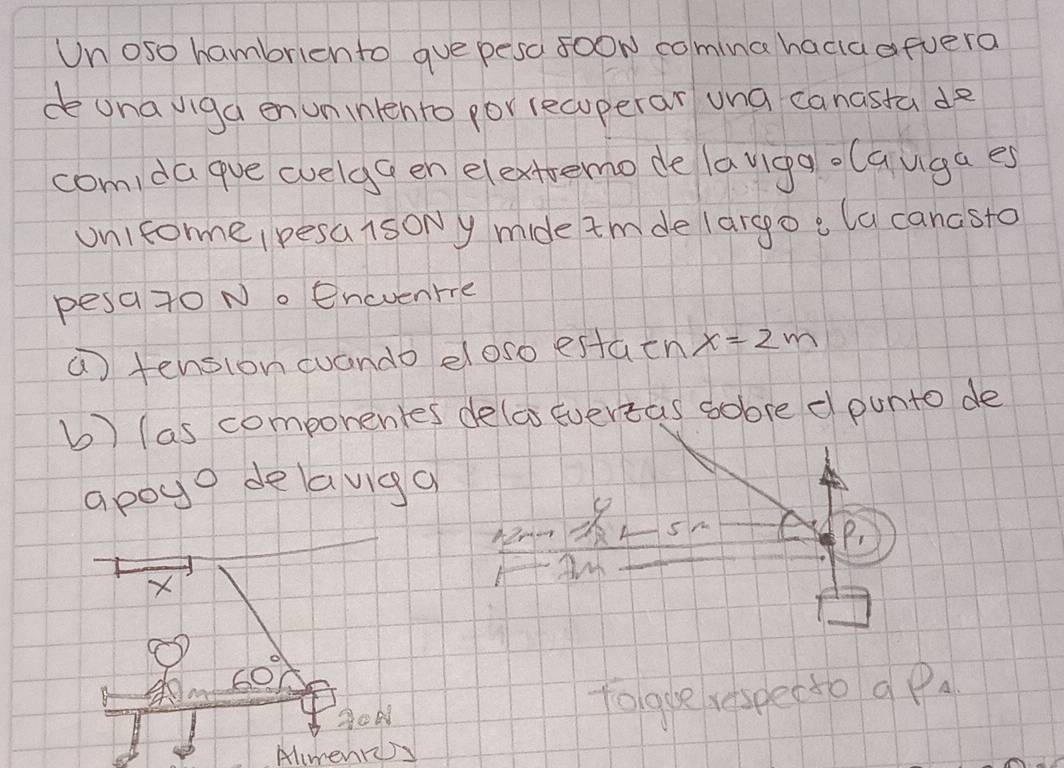 Un oso hambriento que pesa 800N comina hacia afuera
de una viga en un intento por recuperar una canasta de
comida que cuelga en el extremo de la viga. La viga es
uniforme, pesa 150N y mide 7m de largo; la canasto
pesa 70 N. Encuentre
a) tension cuando el oso esta en x=2m
b) las componentes de las fuerzas sobre el punto de
apoyo de la viga
5m
P1
7m
x
60°
70N
Alimentos
Torque respecto a P1.